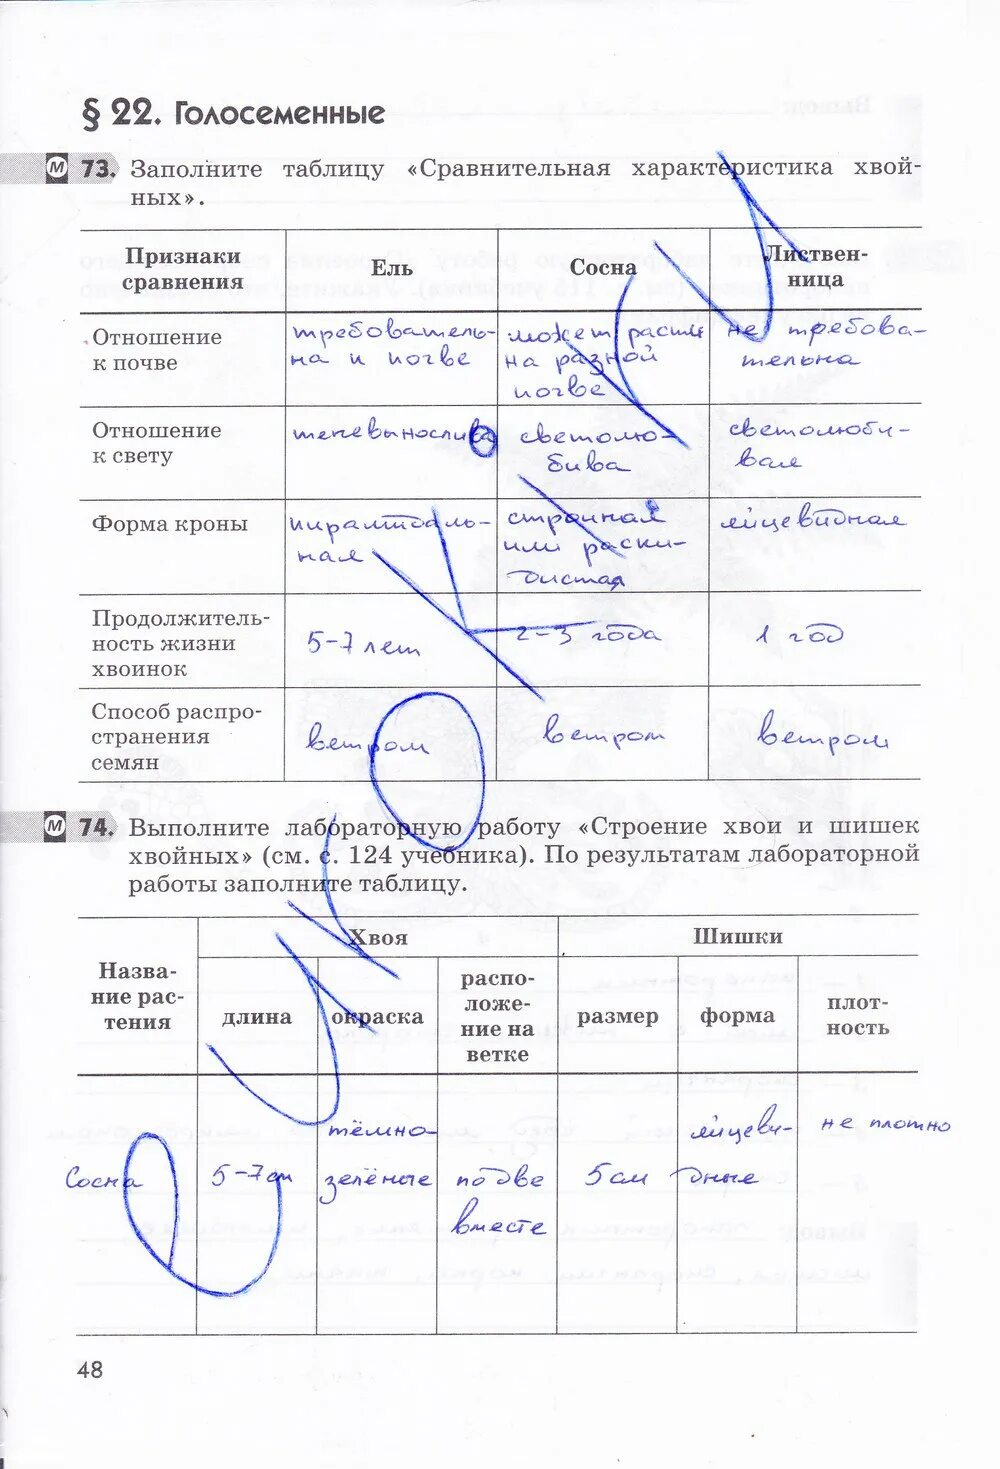 § 22. Голосеменные
М 73. Заполните таблицу «Сравнительная характеристика хвой-
ных».
Признаки
сравнения
Ель
Сосна
Листвен-
ница
Отношение
к почве
требователь-
на и почве
может расти
на разной
почве
не требова-
тельна
Отношение
к свету
теневынослива
светолю-
бива
светолюби-
вая
Форма кроны
пирамидаль-
ная
стройная
или раски-
дистая
яйцевидная
Продолжитель-
ность жизни
хвоинок
5-7 лет
2-3 года
1 год
Способ распро-
странения
семян
ветром
ветром
ветром
М 74. Выполните лабораторную работу «Строение хвои и шишек
хвойных» (см. с. 124 учебника). По результатам лабораторной
работы заполните таблицу.
Назва-
ние рас-
тения
Хвоя
Шишки
длина
окраска
распо-
ложе-
ние на
ветке
размер
форма
плот-
ность
Сосна
5-7 см
тёмно-
зелёные
по две
вместе
5 см
яйцеви-
дные
не плотно
48